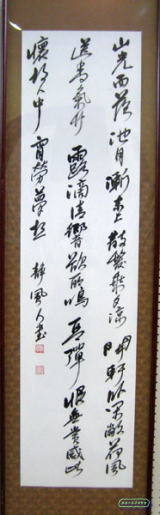 山光西落池月漸東上散髮乘夕涼開軒臥閑敞荷風
送香氣竹露滴清響欲取鳴琴彈恨無賞感此
懷故人中宵勞夢想 靜風人書